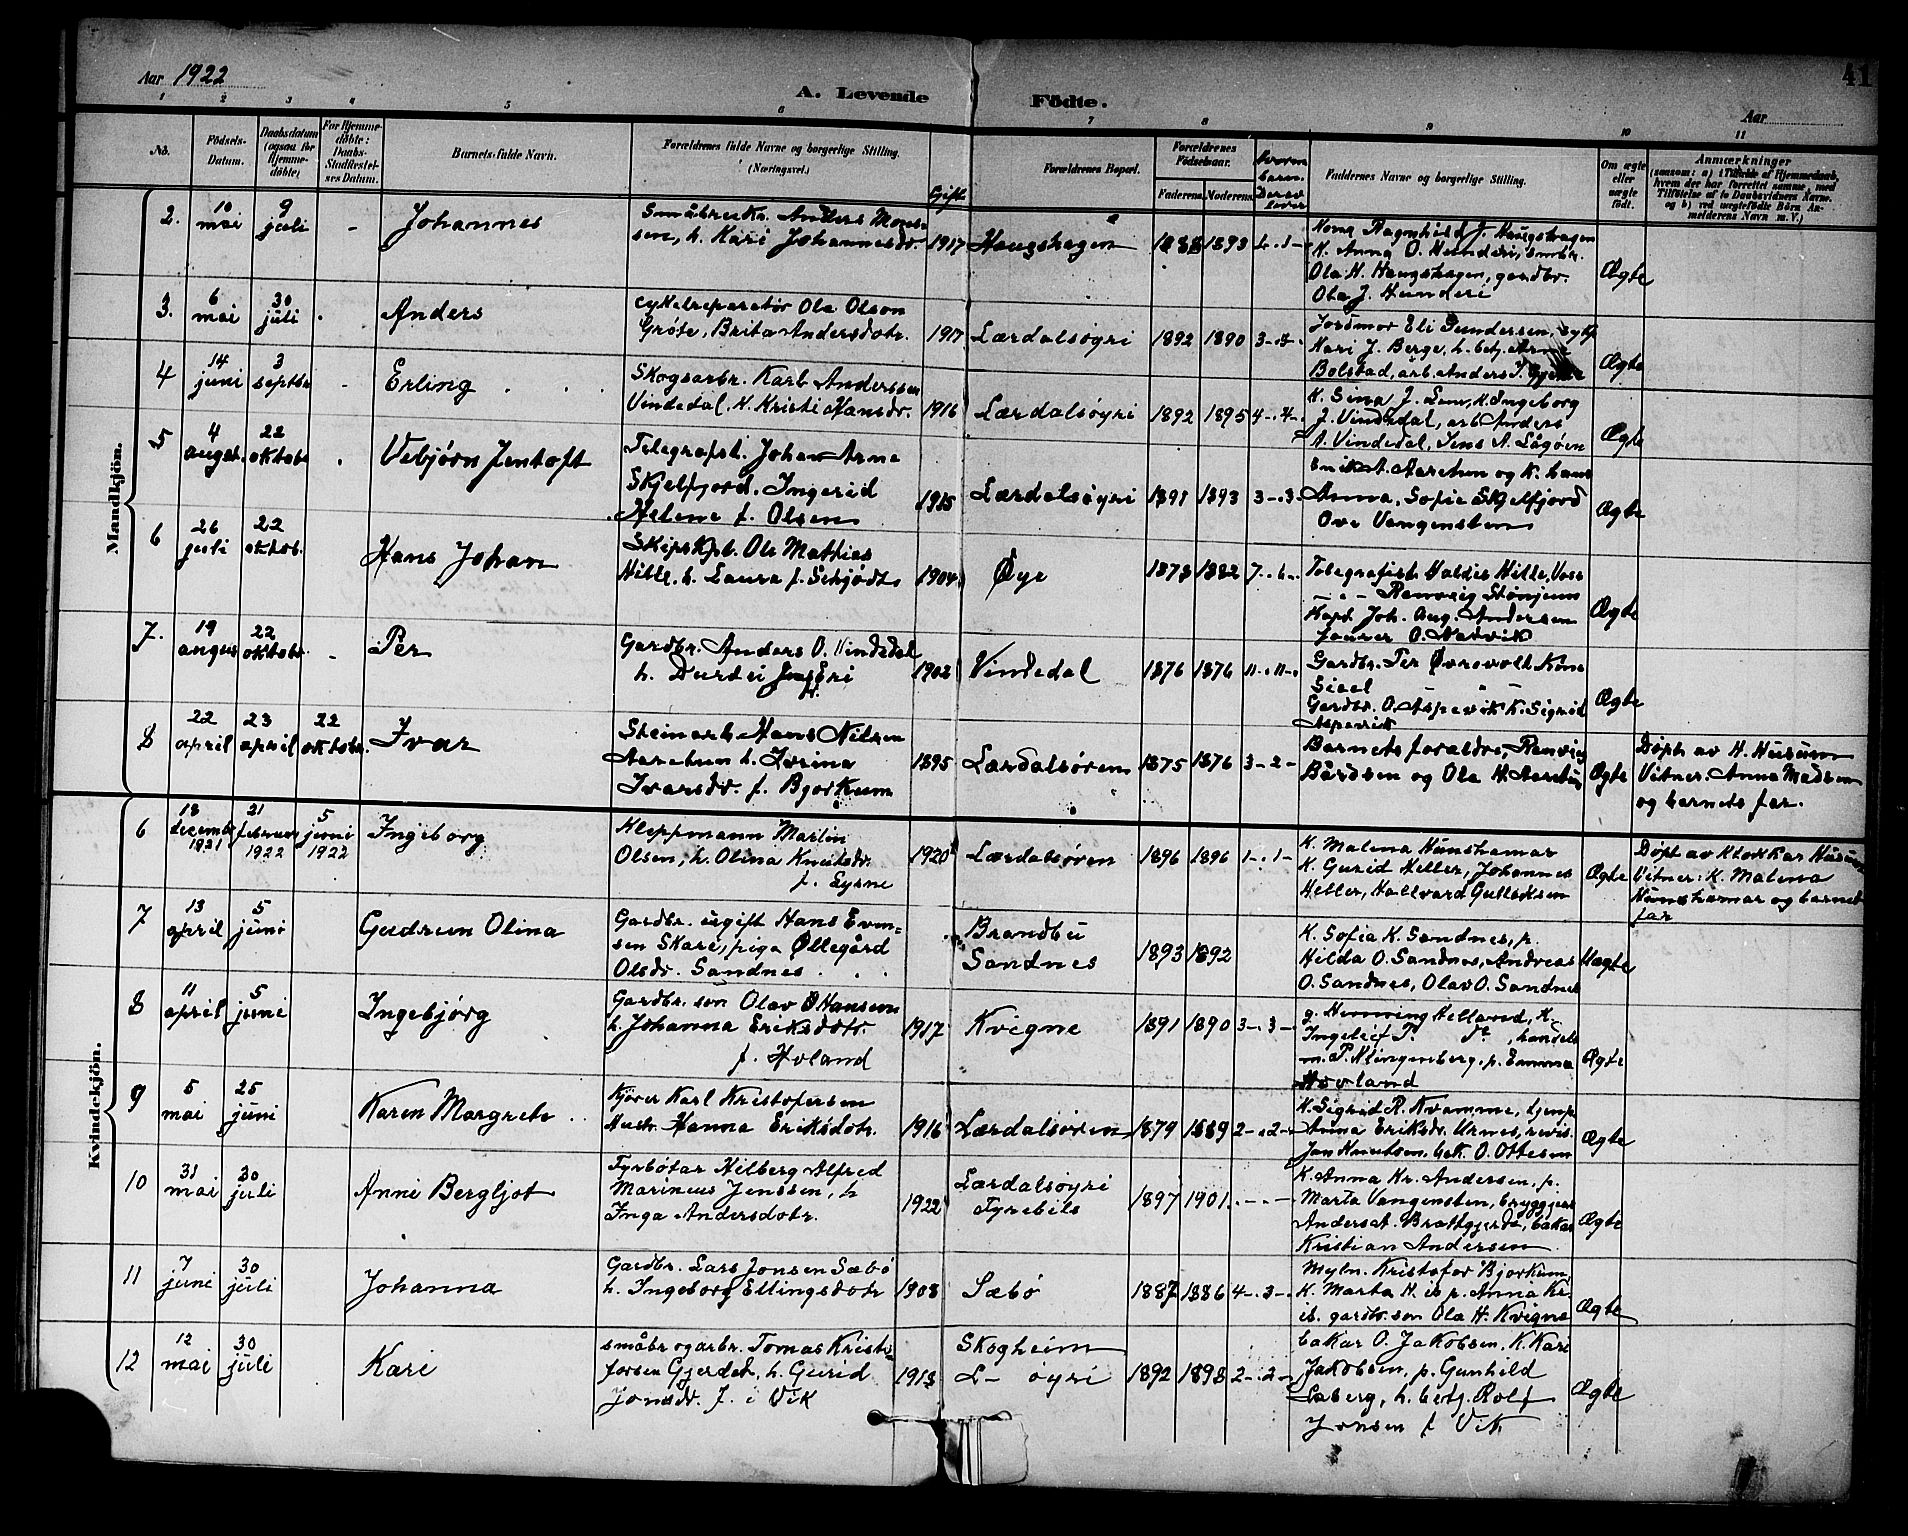 Aar 1922
A. Levende Födte.
41
Aar
1 2 3 4 5 6 7 8 9 10 11
No.
Födsels-Datum.
Daabsdatum (ogsaa for Hjemme-döbte)
For Hjemme-döbte: Daabs-Stadfæstel-ses Datum.
Barnets fulde Navn.
Forældrenes fulde Navne og borgerlige Stilling. (Næringsvei.)
Gift
Forældrenes Bopæl.
Forældrenes Födselsaar.
Faderens. Moderens.
Faddernes Navne og borgerlige Stilling.
Om ægte eller uægte födt.
Anmærkninger
Mandkjön.
2. 10 mai 9 juli - Johannes
Småbrukr. Anders Mons-
sen, h. Kari Johannesdr. 1917 Haugshagen 1893
Kona Ragnhild J. Haugshagen
K. Anna O. Hunderi, smbr.
Ola H. Haugshagen, gardbr.
Ola J. Hunderi
Ægte
3. 6 mai 30 juli Anders
Cykelreparatør Ola Olson
Grøte, Brita Andersdotr. 1917 Lærdalsøyri 1892 1890
Jorsmor Eli Gundersen,
Kari J. Berge, h. betj. Arne
Bolstad, arb. Anders J.
Ægte
4 14 juni 3 septbr - Erling
Skogsarbr. Karl Anderssen
Vindedal, K. Kristi Hansdr. 1916 Lærdalsøyri 1892 1895
K. Sina J. Lem, K. Ingeborg
J. Vindedal, arb. Anders
A. Vindedal, Jens A. Lågøen
Ægte
5 4 august. 22 oktobr Vebjørn Jentoft
Telegrafst. Johan Arne
Skjelfjord, Ingerid
Helene f. Olsen 1915 Lærdalsøyri 1891 1893 3-.3-
Enik A. Aaretun og K. hans
Anna, Sofie Skjelfjord
Ove Vangensten
Ægte
6 26 juli 22 oktob. Hans Johan
Skipskpt. Ole Mathias
Hille, h. Laura f. Schjødt 1904 Øye 1873 1882 7-.6-.
Telegrafist Haldis Hille, Voss
-"- Ranveig Stønjum
Kapt. Joh. Aug. Andersen
O. Nedvik
Ægte
7. 19 august 22 oktobr. - Per
Gardbr. Anders O. Vindedal
h. Durdei 1902 Vindedal 1876 1876 11-.11-.
Gardbr. Per Øvrevoll Kona
Sissel
Gardbr. O. Aspevik K. Sigrid
Aspevik
Ægte
8 22 april 23 april 22 oktobr. Ivar
Steinarb. Hans Nilsen
Aaretun h. Ivrina
Ivarsdr. f. Bjorkum 1895 Lærdalsøren 1875 1876 3-.2-.
Barnets foraldre, Ranveig
Bårdsen og Ola H. Aaretun
Ægte
Døpt av H. Husum
Vitner: Anna Madsen
og barnets far.
Kvindekjön.
6 18 dezembr 1921 21 februar 1922 5 juni 1922 Ingeborg
Kleppmann Martin
Olsen, h. Olina Knutsdr.
f. Lysne 1920 Lærdalsøren 1896 1896 1-.1-
K. Malena Hunshamar
K. Gurid Heller, Johannes
Heller, Hallvard Gulleksen
Ægte
Døpt av klokkar Husum
Vitner: K. Malena
Hunshamar og barnets
far
7 13 april 5 juni Gudrun Olina
Gardbr. ugift Hans Even-
sen Skari, piga Øllegård
Olsdr. Sandnes
Brandbu
Sandnes 1893 1892
K. Sofia K. Sandnes, p.
Hilda O. Sandnes, Andreas
O. Sandnes, Olav O. Sandnes
Uægte
8 11 april 5 juni Ingebjørg
Gardbr. son Olav O Hansen
h. Johanna Eriksdotr.
f. Hvland 1917 Kvigne 1891 1890 3-.3-
g. Henning Helland, K.
Ingelief T. do, handels
m. P. Klingenberg, p. Emma
Hovland
Ægte
9 5 mai 25 juni Karen Margrete
Kjører Karl Kristofersen
Hanna Eriksdotr. 1916 Lærdalsøren 1879 1889 2-.2-
K. Sigrid R. Kvamme, tjenp.
Anna Eriksdr. Urnes, revis.
Jan Knutsen, bok. O. Ottesen
Ægte
10 31 mai 30 juli Anni Bergljot
Fyrbøtar Hilberg Alfred
Marineus Jenssen, h
Inga Andersdotr. 1922
Lærdalsøyri
Fyrebils 1897 1901
K. Anna Kr. Andersen, p.
Marta Vangensten, bryggjear.
Anders A. Brattgjerde, bakar
Kristian Andersen
Ægte
11 7 juni 30 juli Johanna
Gardbr. Lars Jonsen Sæbø
h. Ingeborg Ellingsdotr 1908 Sæbø 1887 1886 4-.3-.
Myln. Kristofer Bjorkum,
K. Marta H. ib p. Anna Kr.
ib. gardbr. son Ola H. Kvigne
Ægte
12 12 mai 30 juli Kari
småbr og arbr. Tomas Kristo-
forsen Gjerdet, h. Gurid
Jonsdr. f. i Vik 1918
Skogheim
L- øyri 1892 1898 2-.2-
bakar O. Jakobsen, K. Kari
Jakobsen, p. Gunhild
Loberg, h. betj. Rolf
Jonsen f Vik
Ægte